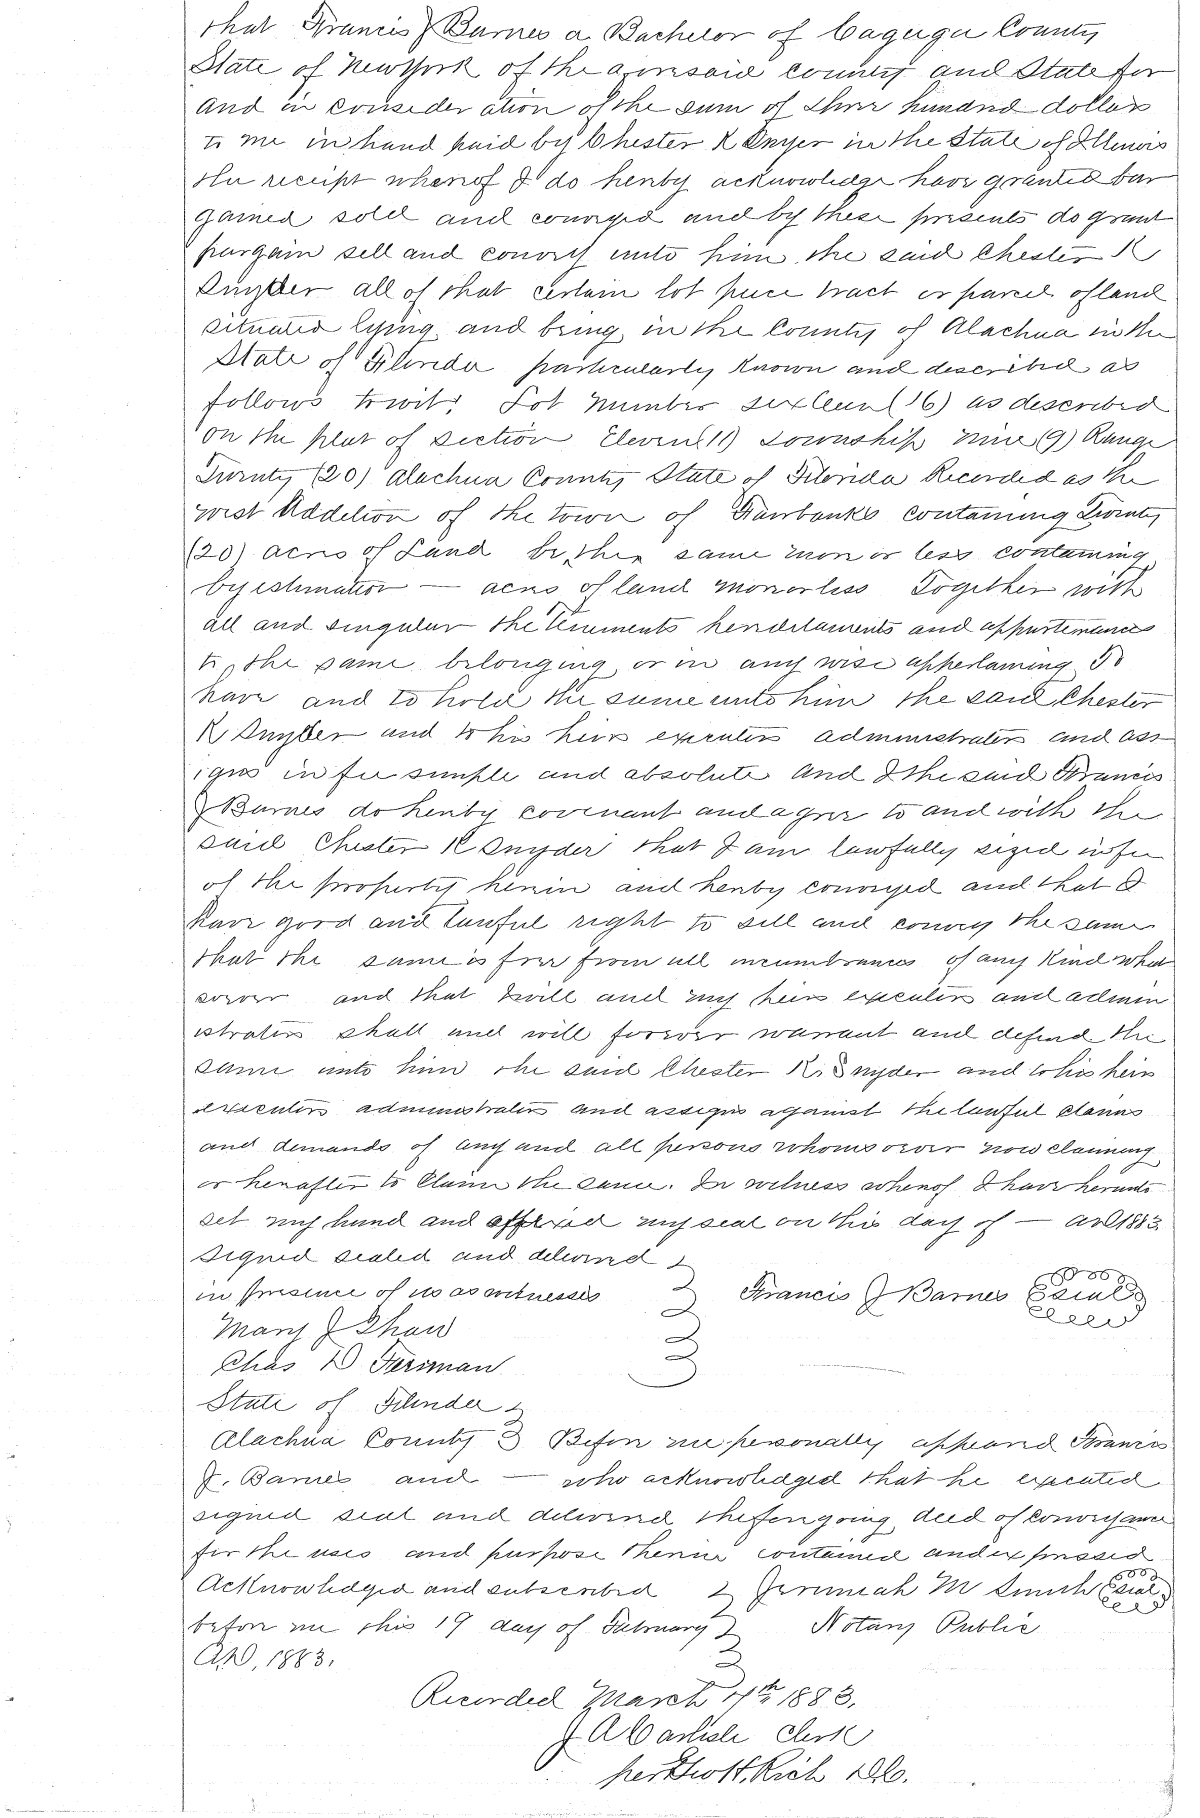 that Francis J Barnes a Bachelor of Cayuga County
State of New York of the aforesaid county and State for
and in consideration of the sum of Three hundred dollars
to me in hand paid by Chester K Snyer in the State of Illenois
the receipt whereof I do hereby acknowledge have granted bar
gained sold and conveyed and by these presents do grant
bargain sell and convey unto him the said Chester K
Snyder all of that certain lot piece tract or parcel of land
situated lying and being in the County of Alachua in the
State of Florida particularly known and described as
follows towit: Lot Number sixteen (16) as described
on the plat of section Eleven (11) Township nine (9) Range
Twenty (20) Alachua County State of Florida Recorded as the
west Addition of the town of Fairbanks containing Twenty
(20) acres of Land be the same more or less containing
by estimation — acres of land more or less Together with
all and singular the tenements hereditaments and appurtenances
to the same belonging or in any wise appertaining To
have and to hold the same unto him the said Chester
K Snyder and to his heirs executors administrators and ass
igns in fee simple and absolute And I the said Francis
J Barnes do hereby covenant and agree to and with the
said Chester K Snyder that I am lawfully sized in fee
of the property herein and hereby conveyed and that I
have good and lawful right to sell and convey the same
that the same is free from all incumbrances of any Kind what
soever and that I will and my heirs executors and admin
istrators shall and will forever warrant and defend the
same unto him the said Chester K. Snyder and to his heirs
executors administrators and assigns against the lawful claims
and demands of any and all persons whomsoever now claiming
or hereafter to Claim the same. In witness whereof I have hereunto
set my hand and affixed my seal on this day of — AD 1883
Signed sealed and delivered
in presence of us as witnesses Francis J Barnes Seal
Mary J Shaw
Chas D Firiman
State of Florida
Alachua County Before me personally appeared Francis
J. Barnes and — who acknowledged that he executed
signed seal and delivered the foregoing deed of Conveyance
for the uses and purpose therein contained and expressed
Acknowledged and subscribed Jeremiah M Smith Seal
before me this 19 day of February Notary Public
AD. 1883.
Recorded March 7th 1883.
J A Carlisle Clerk
per H. Rich D.C.